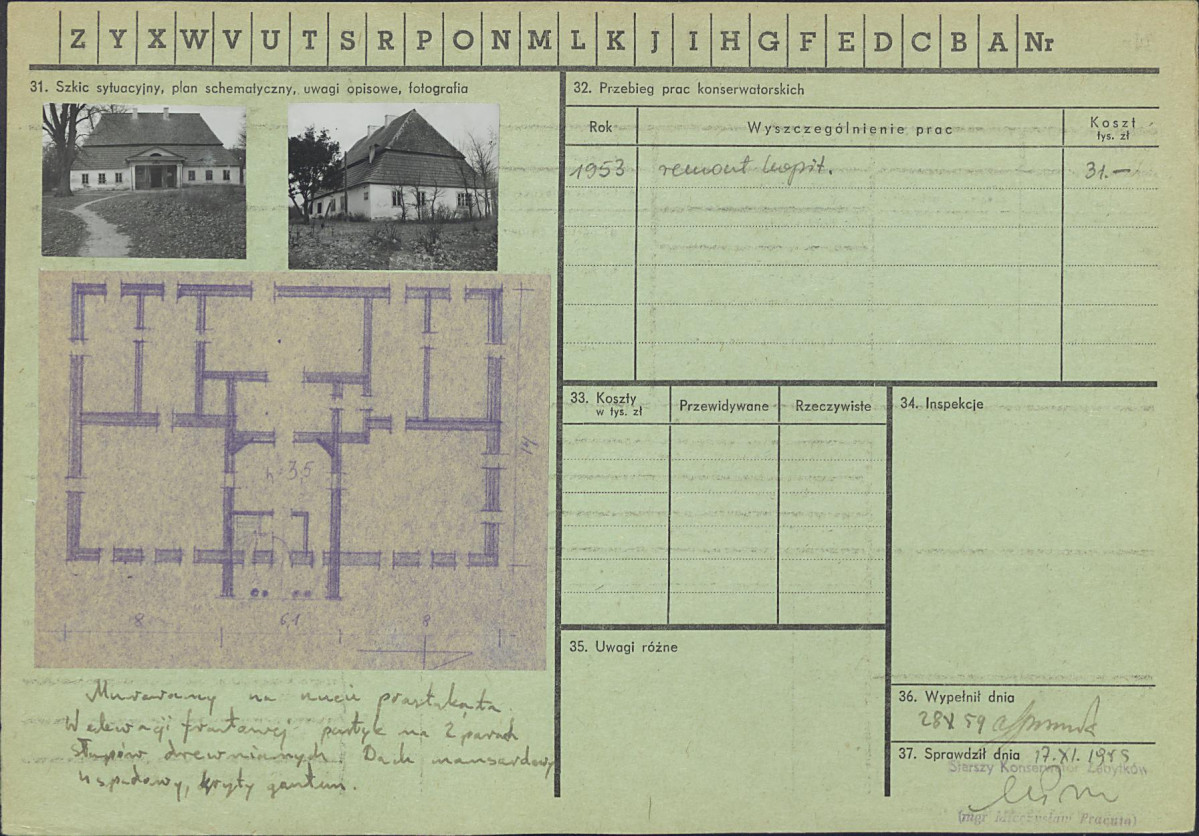 Z Y X W V U T S R P O N M L K J I H G F E D C B A Nr
31. Szkic sytuacyjny, plan schematyczny, uwagi opisowe, fotografia
h 3,5
14
8 6,1 8
Murowany na rzucie prostokąta
W elewacji frontowej portyk na 2 parach
słupów drewnianych. Dach mansardowy
4 spadowy, kryty gontem.
32. Przebieg prac konserwatorskich
Rok Wyszczególnienie prac Koszt
tys. zł
1953 remont kapit. 31.—
33. Koszty
w tys. zł Przewidywane Rzeczywiste
34. Inspekcje
35. Uwagi różne
36. Wypełnił dnia
28 X 59
37. Sprawdził dnia 17.XI.1959
Starszy Konserwator Zabytków
(mgr Mieczysław Pracuta)